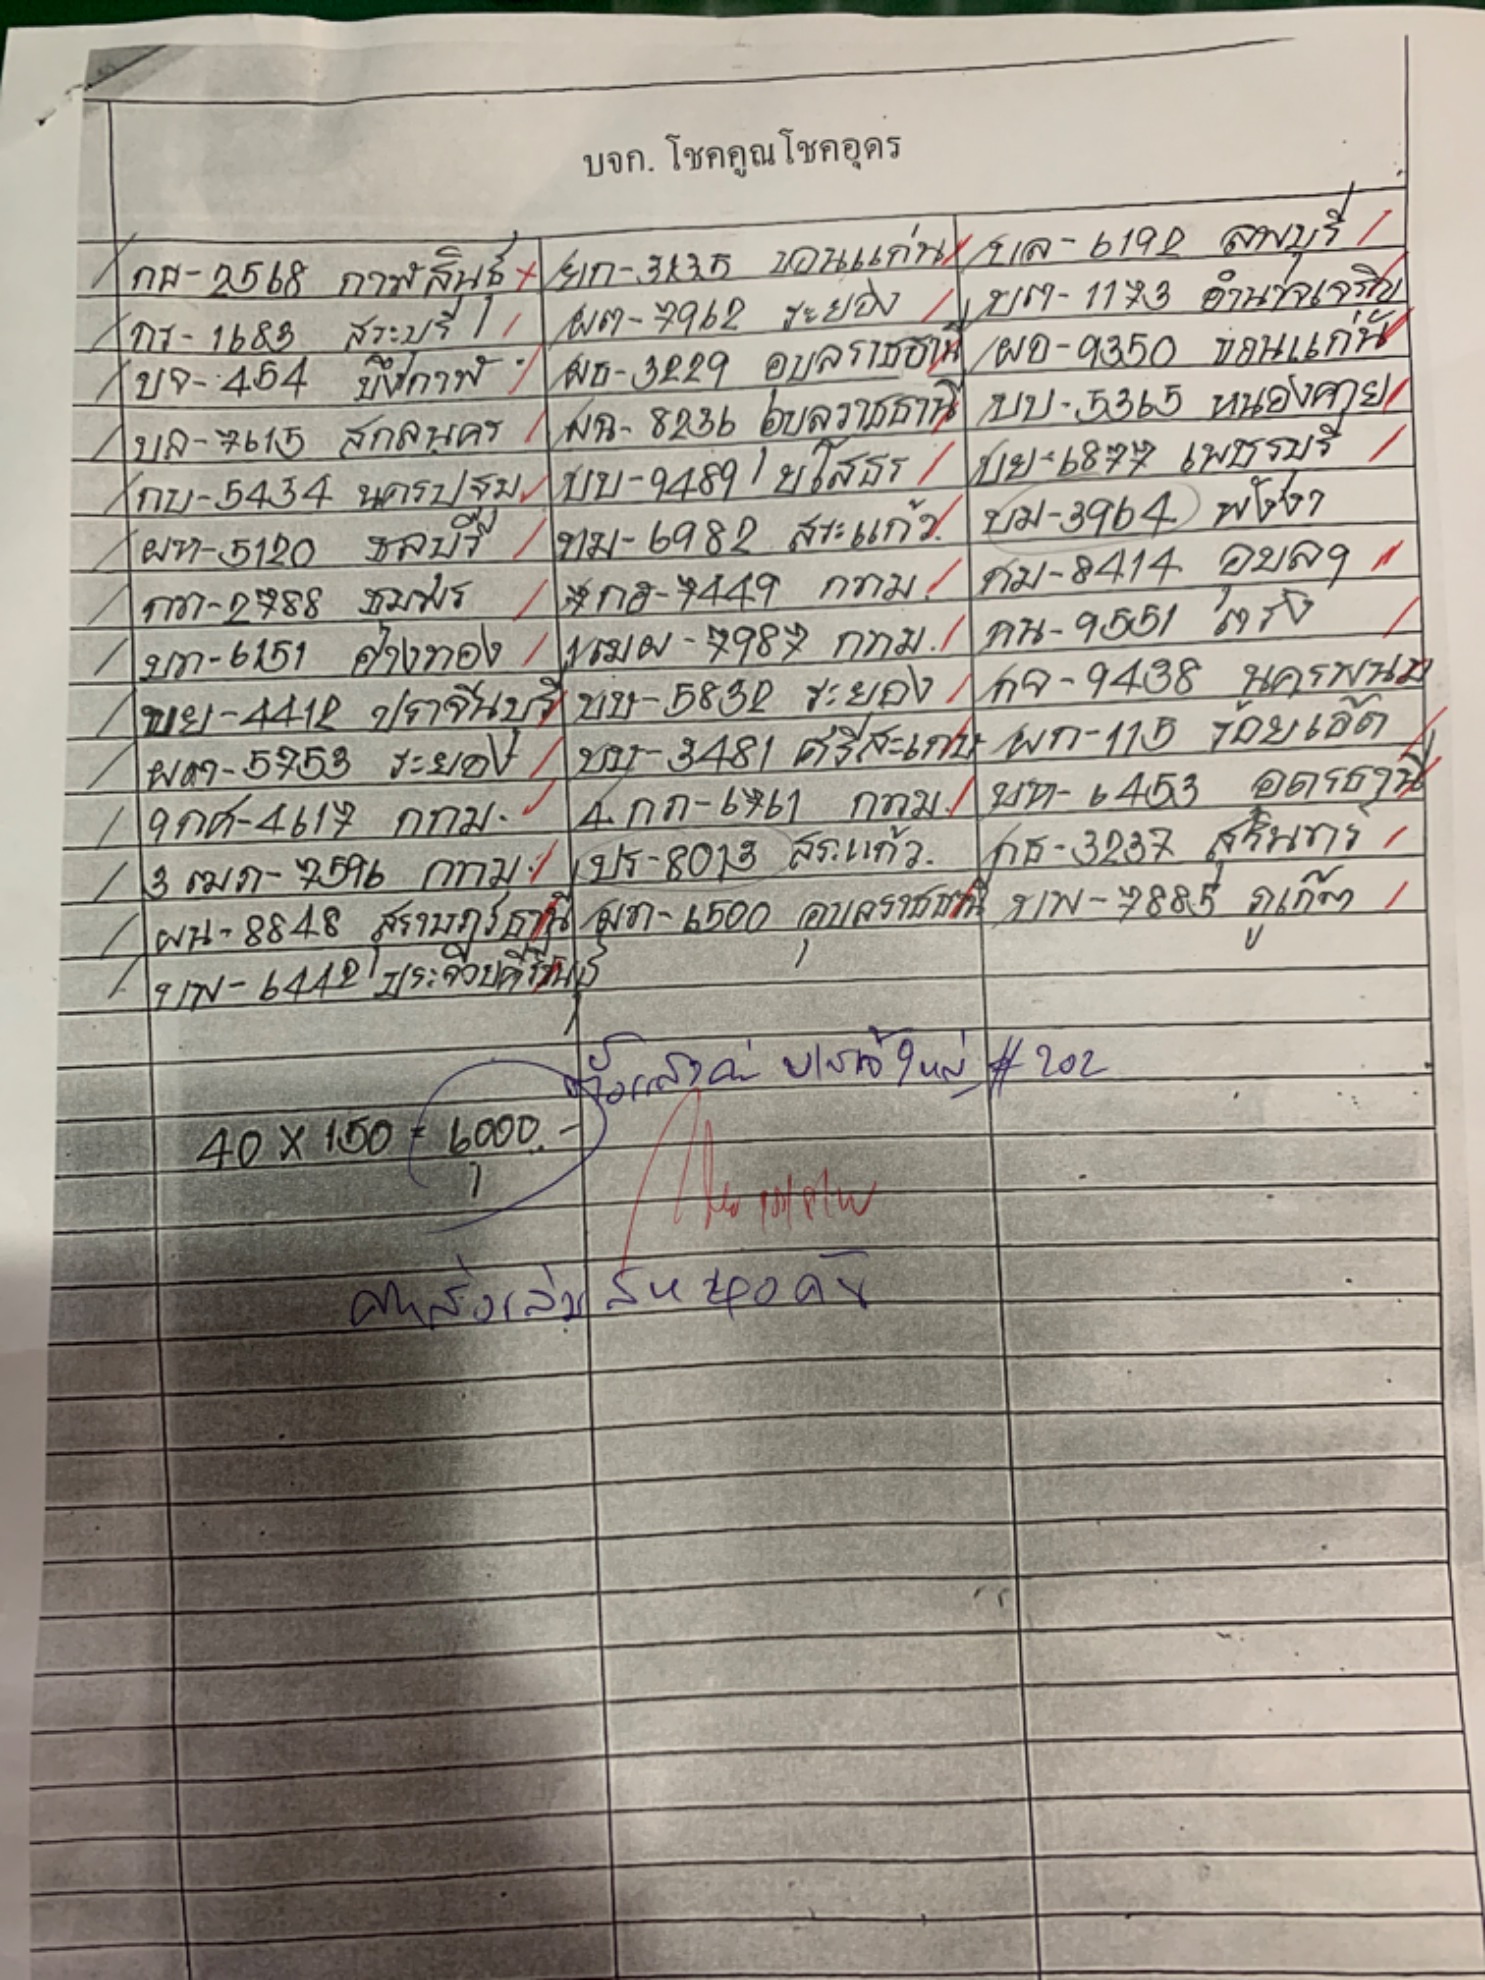 บจก. โชคคูณโชคอุดร
กส-2568 กาฬสินธุ์ ยก-3235 ขอนแก่น บล-6192 ลพบุรี
กร-1683 สระบุรี ผต-7962 ระยอง บต-1173 อำนาจเจริญ
บจ-454 บึงกาฬ ผธ-3229 อุบลราชธานี ผอ-9350 ขอนแก่น
บล-7615 สกลนคร ผฉ-8236 อุบลราชธานี บบ-5365 หนองคาย
กบ-5434 นครปฐม บบ-9489 ยโสธร บย-6877 เพชรบุรี
ผท-5120 ชลบุรี บม-6982 สระแก้ว บม-3964 พังงา
กต-2788 ชุมพร 7กฮ-7449 กทม. กม-8414 อุบลฯ
บก-6151 อ่างทอง 1ฒผ-7987 กทม. กน-9551 ตรัง
ขย-4412 ปราจีนบุรี ขบ-5832 ระยอง กจ-9438 นครพนม
ผต-5753 ระยอง บบ-3481 ศรีสะเกษ ผก-115 ร้อยเอ็ด
9กศ-4617 กทม. 4กก-6761 กทม. บท-6453 อุดรธานี
3ฒภ-7596 กทม. บร-8013 สระแก้ว. กธ-3237 สุรินทร์
ผน-8848 สุราษฎร์ธานี ผก-6500 อุบลราชธานี บพ-7885 ภูเก็ต
บพ-6442 ประจวบคีรีขันธ์
#202
40 X 150 = 6000.-